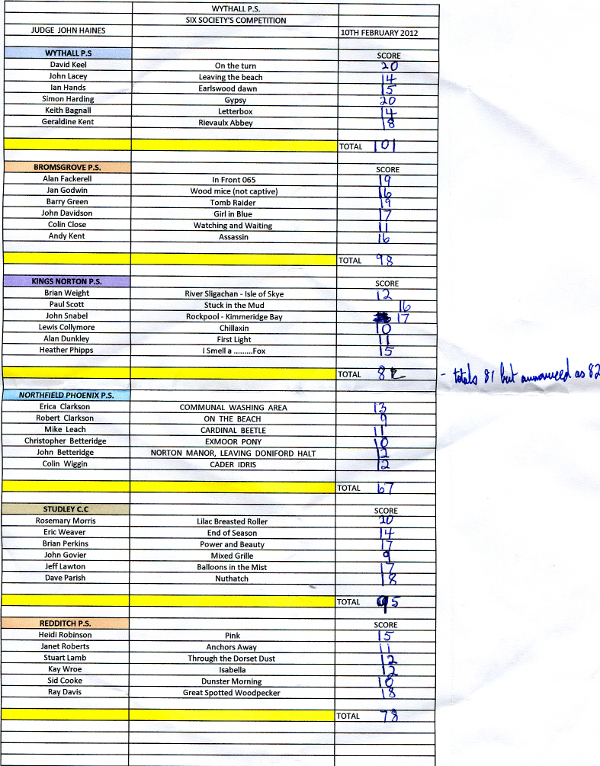 WYTHALL P.S.
SIX SOCIETY'S COMPETITION
JUDGE JOHN HAINES 10TH FEBRUARY 2012
WYTHALL P.S SCORE
David Keel On the turn 20
John Lacey Leaving the beach 14
Ian Hands Earlswood dawn 15
Simon Harding Gypsy 20
Keith Bagnall Letterbox 14
Geraldine Kent Rievaulx Abbey 18
TOTAL 101
BROMSGROVE P.S. SCORE
Alan Fackerell In Front 065 19
Jan Godwin Wood mice (not captive) 16
Barry Green Tomb Raider 19
John Davidson Girl in Blue 17
Colin Close Watching and Waiting 11
Andy Kent Assassin 16
TOTAL 98
KINGS NORTON P.S. SCORE
Brian Weight River Sligachan - Isle of Skye 12
Paul Scott Stuck in the Mud 16
John Snabel Rockpool - Kimmeridge Bay 17
Lewis Collymore Chillaxin 10
Alan Dunkley First Light 11
Heather Phipps I Smell a .........Fox 15
TOTAL 82 - totals 81 but announced as 82
NORTHFIELD PHOENIX P.S. SCORE
Erica Clarkson COMMUNAL WASHING AREA 13
Robert Clarkson ON THE BEACH 9
Mike Leach CARDINAL BEETLE 11
Christopher Betteridge EXMOOR PONY 10
John Betteridge NORTON MANOR, LEAVING DONIFORD HALT 12
Colin Wiggin CADER IDRIS 12
TOTAL 67
STUDLEY C.C SCORE
Rosemary Morris Lilac Breasted Roller 20
Eric Weaver End of Season 14
Brian Perkins Power and Beauty 17
John Govier Mixed Grille 9
Jeff Lawton Balloons in the Mist 17
Dave Parish Nuthatch 18
TOTAL 95
REDDITCH P.S. SCORE
Heidi Robinson Pink 15
Janet Roberts Anchors Away 11
Stuart Lamb Through the Dorset Dust 12
Kay Wroe Isabella 12
Sid Cooke Dunster Morning 10
Ray Davis Great Spotted Woodpecker 18
TOTAL 78